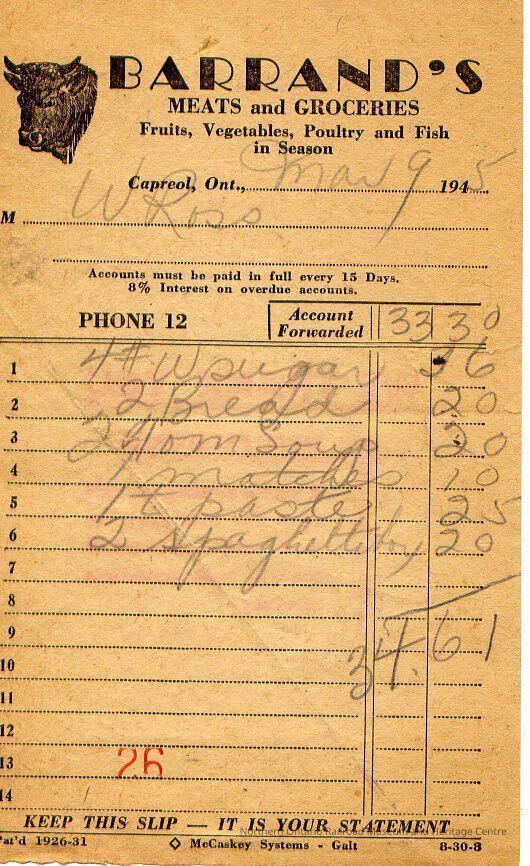 BARRAND'S
MEATS and GROCERIES
Fruits, Vegetables, Poultry and Fish
in Season
Capreol, Ont., Mar 9 1945
M W Ross
Accounts must be paid in full every 15 Days.
8% Interest on overdue accounts.
PHONE 12 Account Forwarded 33 30
1 4# W sugar 36
2 2 Bread 20
3 2 Tom Soup 20
4 1 matches 10
5 1 t paste 25
6 2 spaghetti 20
7
8
9 34.61
10
11
12
13 26
14
KEEP THIS SLIP — IT IS YOUR STATEMENT
Northern Ontario Railroad Museum and Heritage Centre
Pat'd 1926-31 ◇ McCaskey Systems - Galt 8-30-8